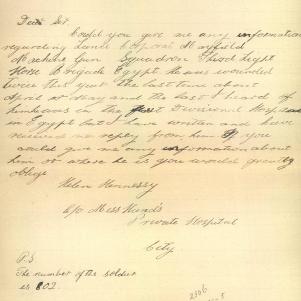 Dear Sir
Could you give me any information
regarding Lance Corporal Mayfield
Machine Gun Squadron Third Light
Horse Brigade Egypt. He was wounded
twice this year the last time about
April or May and the last I heard of
him was in the First Divisional Hospital
in Egypt but I have written and have
received no reply from him If you
could give me any information about
him or where he is you would greatly
oblige
Helen Hennessy
c/o Miss Hurd's
Private Hospital
City
P.S
The number of the soldier
is 802.